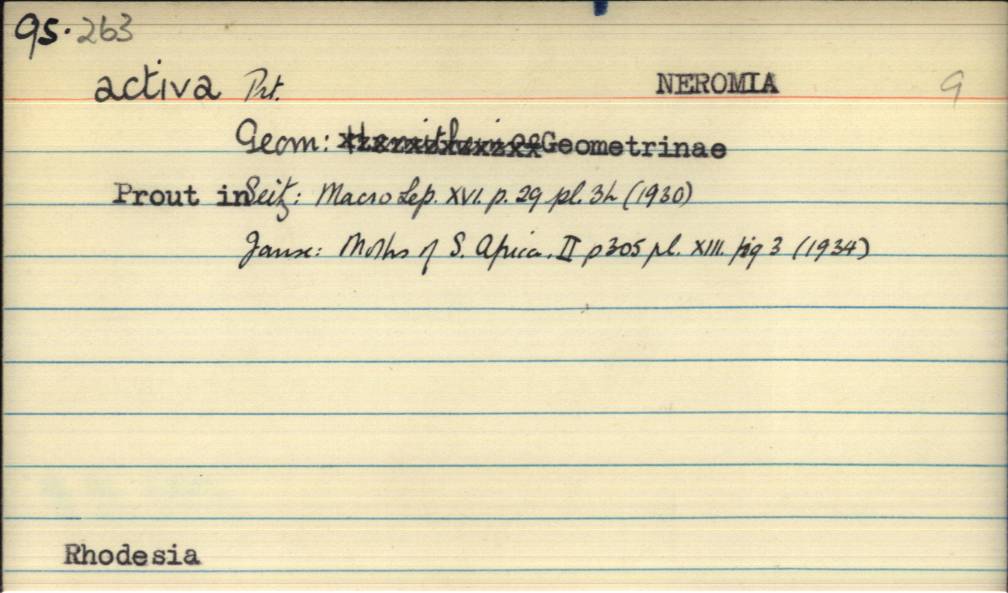 95.263
activa Prt. NEROMIA 9
Geom: Hemitheinae Geometrinae
Prout in Seitz: Macro Lep. XVI. p. 29 pl. 3h (1930)
Janse: Moths of S. Africa. II p305 pl. XIII. fig 3 (1934)
Rhodesia